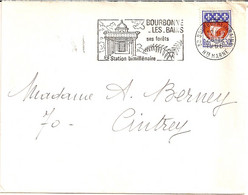 BOURBONNE
LES BAINS
ses forêts
Station bimillénaire
Madame A. Berney
70 - Cintrey